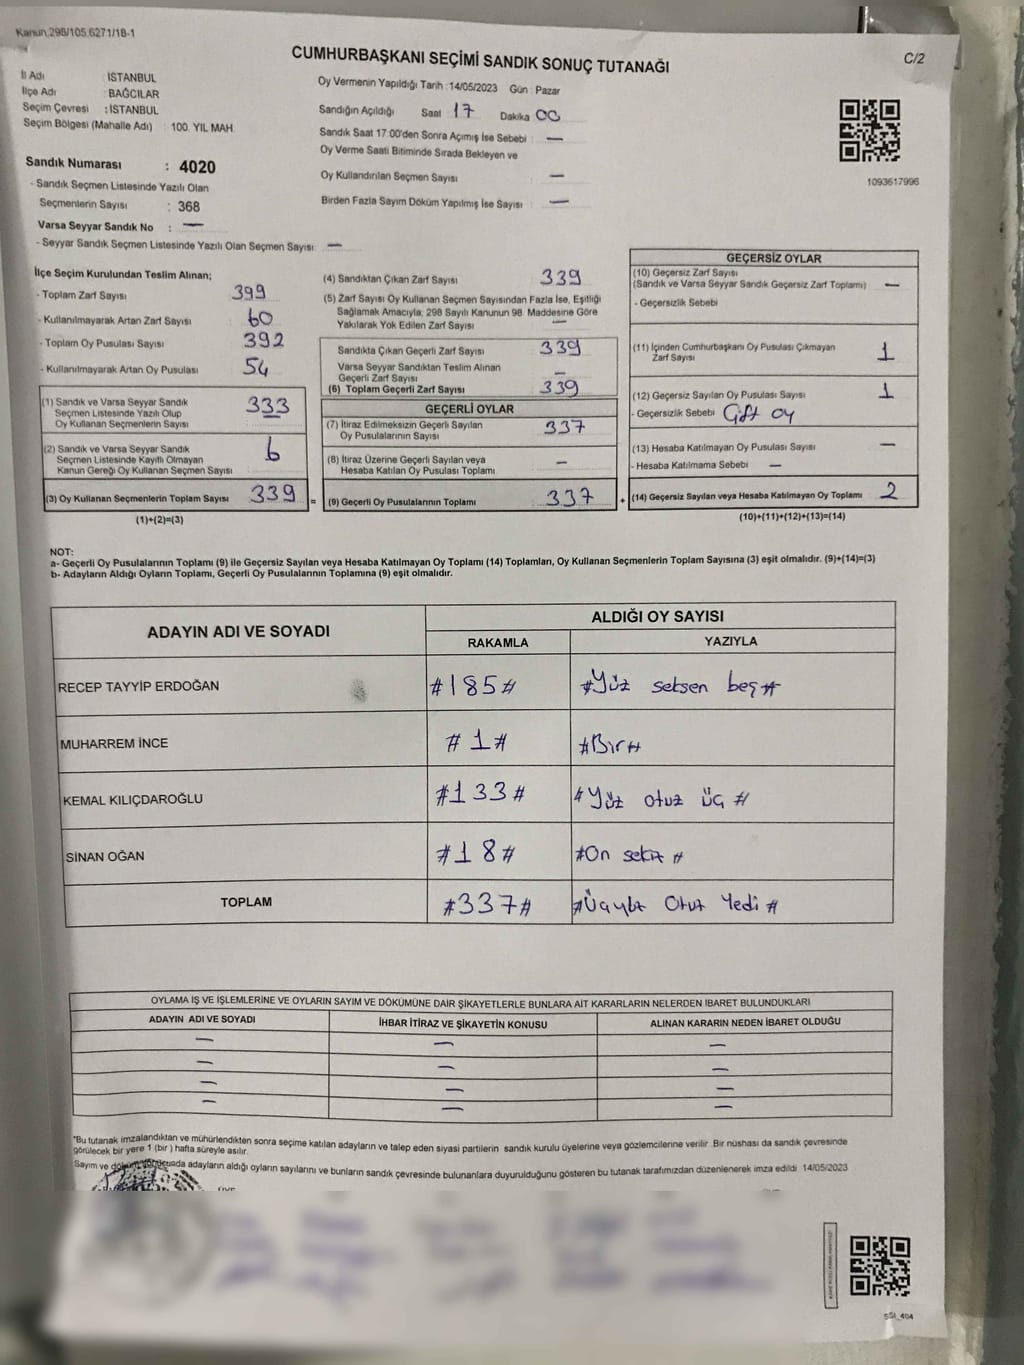 Kanun.298/105,6271/18-1
CUMHURBAŞKANI SEÇİMİ SANDIK SONUÇ TUTANAĞI
C/2
İl Adı : İSTANBUL
İlçe Adı : BAĞCILAR
Seçim Çevresi : İSTANBUL
Seçim Bölgesi (Mahalle Adı) : 100. YIL MAH.
Oy Vermenin Yapıldığı Tarih : 14/05/2023 Gün : Pazar
Sandığın Açıldığı Saat 17 Dakika 00
Sandık Saat 17:00'den Sonra Açımış İse Sebebi —
Oy Verme Saati Bitiminde Sırada Bekleyen ve
Oy Kullandırılan Seçmen Sayısı —
Birden Fazla Sayım Döküm Yapılmış İse Sayısı —
1093617996
Sandık Numarası : 4020
- Sandık Seçmen Listesinde Yazılı Olan
Seçmenlerin Sayısı : 368
Varsa Seyyar Sandık No : —
- Seyyar Sandık Seçmen Listesinde Yazılı Olan Seçmen Sayısı: —
İlçe Seçim Kurulundan Teslim Alınan;
- Toplam Zarf Sayısı 399
- Kullanılmayarak Artan Zarf Sayısı 60
- Toplam Oy Pusulası Sayısı 392
- Kullanılmayarak Artan Oy Pusulası 54
(1) Sandık ve Varsa Seyyar Sandık
Seçmen Listesinde Yazılı Olup
Oy Kullanan Seçmenlerin Sayısı 333
(2) Sandık ve Varsa Seyyar Sandık
Seçmen Listesinde Kayıtlı Olmayan
Kanun Gereği Oy Kullanan Seçmen Sayısı 6
(3) Oy Kullanan Seçmenlerin Toplam Sayısı 339 =
(1)+(2)=(3)
(4) Sandıktan Çıkan Zarf Sayısı 339
(5) Zarf Sayısı Oy Kullanan Seçmen Sayısından Fazla İse, Eşitliği
Sağlamak Amacıyla, 298 Sayılı Kanunun 98. Maddesine Göre
Yakılarak Yok Edilen Zarf Sayısı —
Sandıkta Çıkan Geçerli Zarf Sayısı 339
Varsa Seyyar Sandıktan Teslim Alınan
Geçerli Zarf Sayısı —
(6) Toplam Geçerli Zarf Sayısı 339
GEÇERLİ OYLAR
(7) İtiraz Edilmeksizin Geçerli Sayılan
Oy Pusulalarının Sayısı 337
(8) İtiraz Üzerine Geçerli Sayılan veya
Hesaba Katılan Oy Pusulası Toplamı —
(9) Geçerli Oy Pusulalarının Toplamı 337 +
GEÇERSİZ OYLAR
(10) Geçersiz Zarf Sayısı
(Sandık ve Varsa Seyyar Sandık Geçersiz Zarf Toplamı) —
- Geçersizlik Sebebi
(11) İçinden Cumhurbaşkanı Oy Pusulası Çıkmayan
Zarf Sayısı 1
(12) Geçersiz Sayılan Oy Pusulası Sayısı 1
- Geçersizlik Sebebi Çift oy
(13) Hesaba Katılmayan Oy Pusulası Sayısı —
- Hesaba Katılmama Sebebi —
(14) Geçersiz Sayılan veya Hesaba Katılmayan Oy Toplamı 2
(10)+(11)+(12)+(13)=(14)
NOT:
a- Geçerli Oy Pusulalarının Toplamı (9) ile Geçersiz Sayılan veya Hesaba Katılmayan Oy Toplamı (14) Toplamları, Oy Kullanan Seçmenlerin Toplam Sayısına (3) eşit olmalıdır. (9)+(14)=(3)
b- Adayların Aldığı Oyların Toplamı, Geçerli Oy Pusulalarının Toplamına (9) eşit olmalıdır.
ADAYIN ADI VE SOYADI ALDIĞI OY SAYISI
RAKAMLA YAZIYLA
RECEP TAYYİP ERDOĞAN #185# #Yüz seksen beş#
MUHARREM İNCE #1# #Bir#
KEMAL KILIÇDAROĞLU #133# #Yüz otuz üç#
SİNAN OĞAN #18# #On sekiz#
TOPLAM #337# #Üçyüz Otuz Yedi#
OYLAMA İŞ VE İŞLEMLERİNE VE OYLARIN SAYIM VE DÖKÜMÜNE DAİR ŞİKAYETLERLE BUNLARA AİT KARARLARIN NELERDEN İBARET BULUNDUKLARI
ADAYIN ADI VE SOYADI İHBAR İTİRAZ VE ŞİKAYETİN KONUSU ALINAN KARARIN NEDEN İBARET OLDUĞU
— — —
— — —
— — —
— — —
*Bu tutanak imzalandıktan ve mühürlendikten sonra seçime katılan adayların ve talep eden siyasi partilerin sandık kurulu üyelerine veya gözlemcilerine verilir. Bir nüshası da sandık çevresinde
görülecek bir yere 1 (bir) hafta süreyle asılır.
Sayım ve adayların aldığı oyların sayılarını ve bunların sandık çevresinde bulunanlara duyurulduğunu gösteren bu tutanak tarafımızdan düzenlenerek imza edildi 14/05/2023